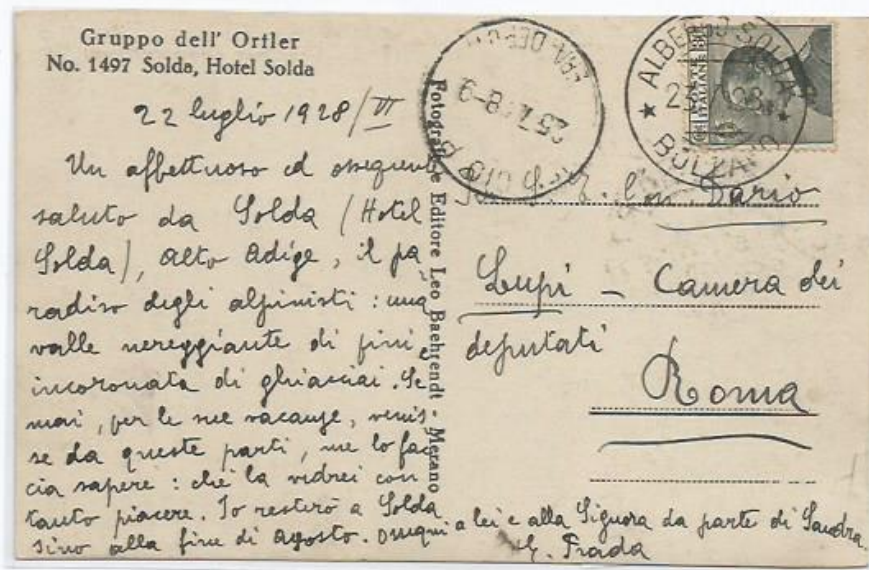 Gruppo dell' Ortler
No. 1497 Solda, Hotel Solda
22 luglio 1928/VI
Un affettuoso ed ossequente
saluto da Solda (Hotel
Solda), alto Adige, il pa
radiso degli alpinisti: una
valle nereggiante di pini,
incoronata di ghiacciai. Se
mai, per le sue vacanze, venis-
se da queste parti, me lo fac
cia sapere: chè la vedrei con
tanto piacere. Io resterò a Solda
sino alla fine di agosto. Ossequi a lei e alla Signora da parte di Sandra.
G. Prada
Fotografia e Editore Leo Baehrendt Merano
ALBERGO SOLDA
BOLZANO
POSTE ITALIANE
S. E. l'on. Dario
Lupi – Camera dei
deputati
Roma